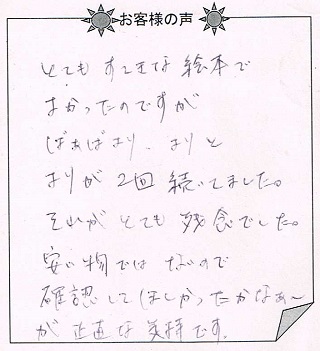 お客様の声
とてもすてきな絵本で
よかったのですが
ばぁばより、よりと
よりが2回続いてました。
それがとても残念でした。
安い物ではないので
確認してほしかったかなぁ〜
が正直な気持です。